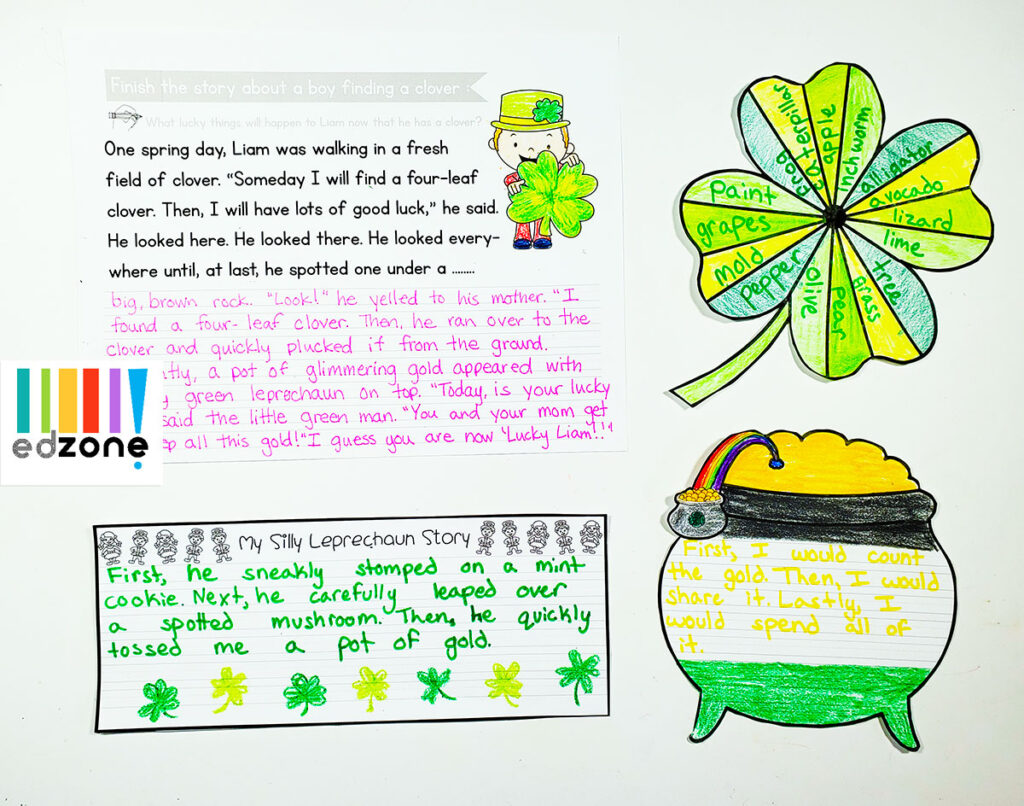 Finish the story about a boy finding a clover :
What lucky things will happen to Liam now that he has a clover?
One spring day, Liam was walking in a fresh
field of clover. "Someday I will find a four-leaf
clover. Then, I will have lots of good luck," he said.
He looked here. He looked there. He looked every-
where until, at last, he spotted one under a ........
big, brown rock. "Look!" he yelled to his mother. "I
found a four-leaf clover. Then, he ran over to the
clover and quickly plucked it from the ground.
a pot of glimmering gold appeared with
green leprechaun on top. "Today, is your lucky
said the little green man. "You and your mom get
all this gold!" "I guess you are now 'Lucky Liam'!."
edzone!
My Silly Leprechaun Story
First, he sneakly stomped on a mint
cookie. Next, he carefully leaped over
a spotted mushroom. Then, he quickly
tossed me a pot of gold.
frog
caterpillar
apple
inchworm
alligator
avocado
lizard
lime
tree
grass
pear
olive
pepper
mold
grapes
paint
First, I would count
the gold. Then, I would
share it. Lastly, I
would spend all of
it.